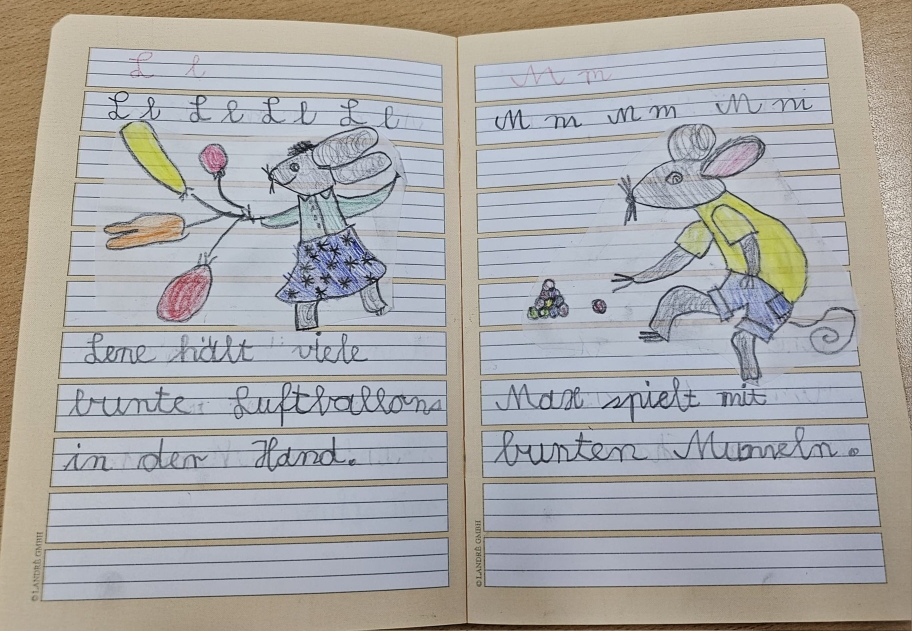 L l
L l L l L l L l
Lene hält viele
bunte Luftballons
in der Hand.
© LANDRÉ GMBH
M m
M m M m M m
Max spielt mit
bunten Murmeln.
© LANDRÉ GMBH